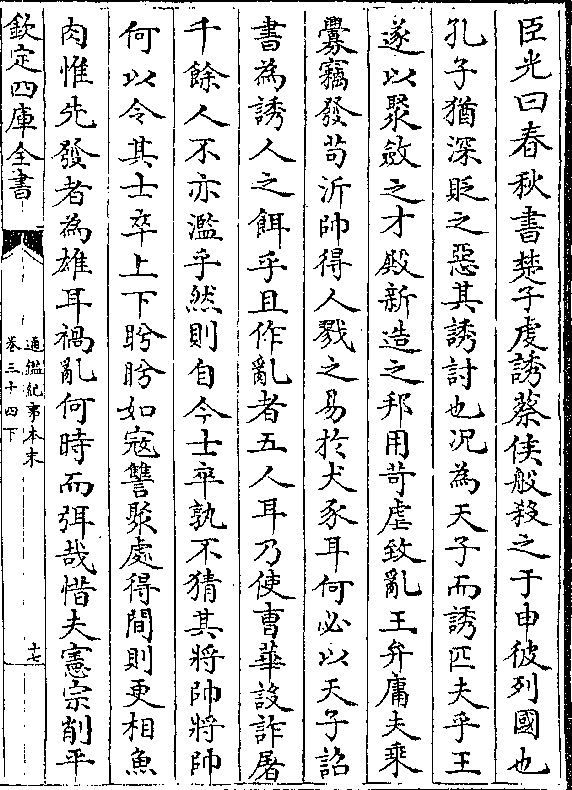 臣光曰春秋書楚子虔誘蔡侯般殺之于申彼列國也
孔子猶深貶之惡其誘討也况為天子而誘匹夫乎王
遂以聚斂之才殿新造之邦用苛虐致亂王弁庸夫乘
釁竊發苟沂帥得人戮之易於犬豕耳何必以天子詔
書為誘人之餌乎且作亂者五人耳乃使曹華設詐屠
千餘人不亦濫乎然則自今士卒孰不猜其將帥將帥
何以令其士卒上下盻盻如寇讐聚處得間則更相魚
肉惟先發者為雄耳禍亂何時而弭哉惜夫憲宗削平
欽定四庫全書
通鑑紀事本末
卷三十四下
十七